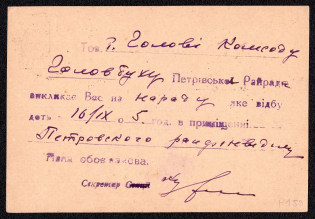 Тов. т. Голові Комсоду
Головбуху Петрівської Райради
викликає Вас на нараду яке відбу
деть 16/IX о 5 год. в приміщенні
Петровского
Явка обовязкова.
Секретар